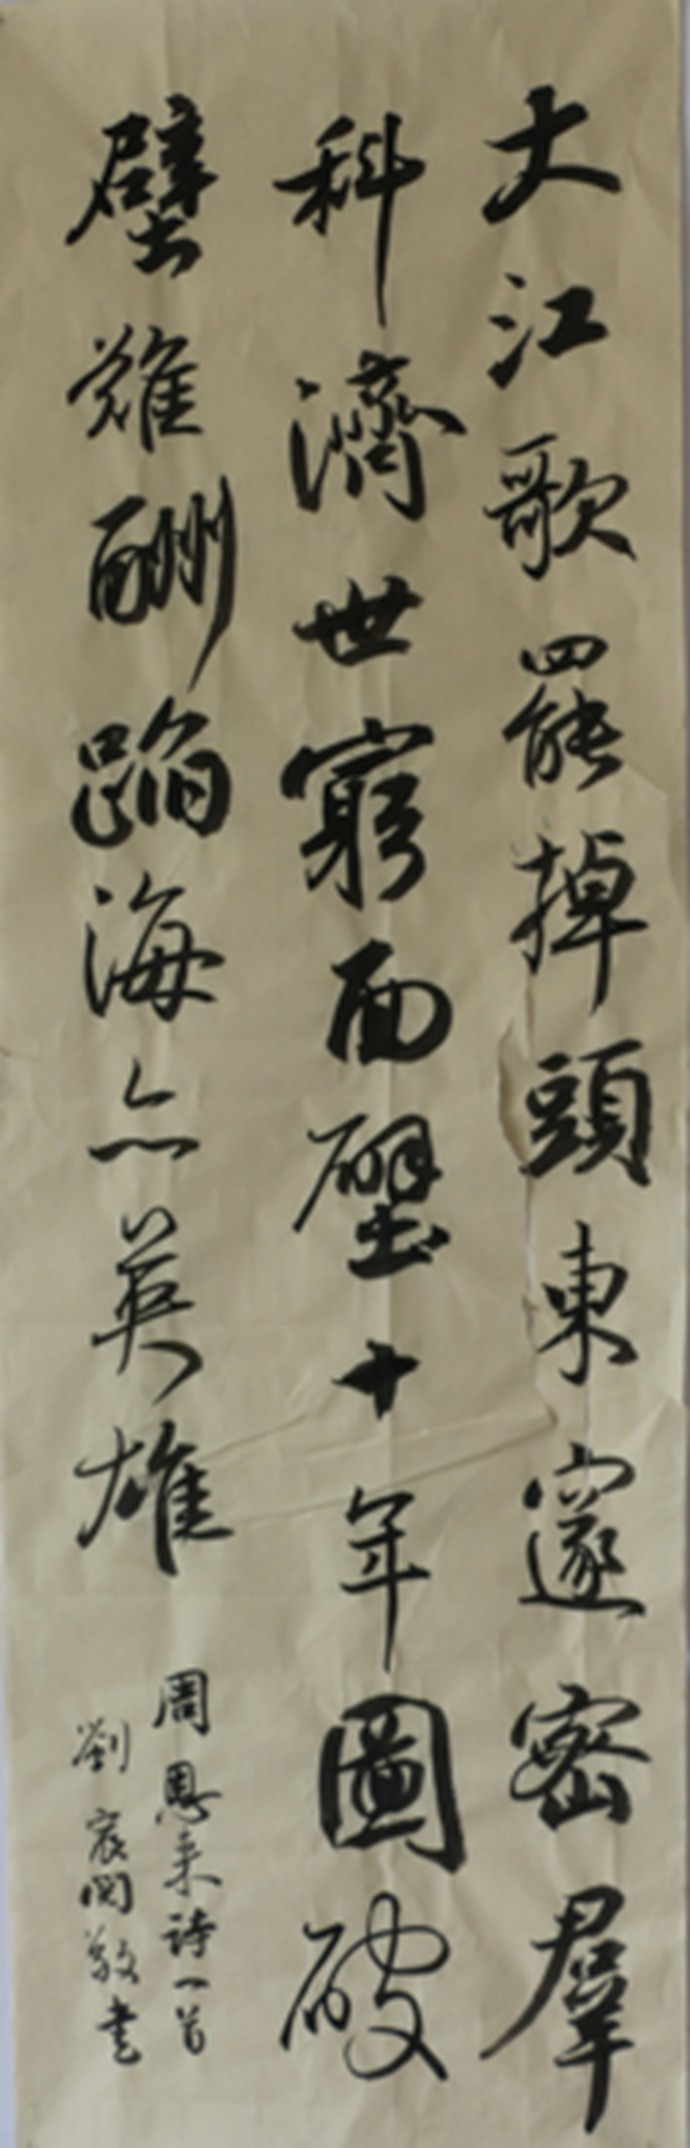 大江歌罷掉頭東邃密羣
科濟世窮面壁十年圖破
壁難酬蹈海亦英雄
周恩来詩一首
劉敬書